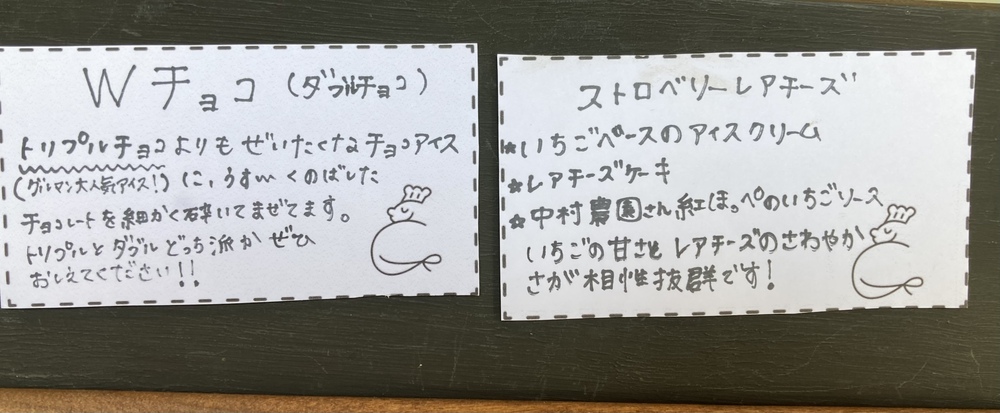 Wチョコ (ダブルチョコ)
トリプルチョコよりもぜいたくなチョコアイス
(グルマン大人気アイス!) に、うすい くのばした
チョコレートを細かく砕いてまぜてます。
トリプルとダブル どっち派か ぜひ
おしえてください!!
ストロベリーレアチーズ
☆いちごベースのアイスクリーム
☆レアチーズケーキ
☆中村農園さん紅ほっぺのいちごソース
いちごの甘さと レアチーズのさわやか
さが相性抜群です!